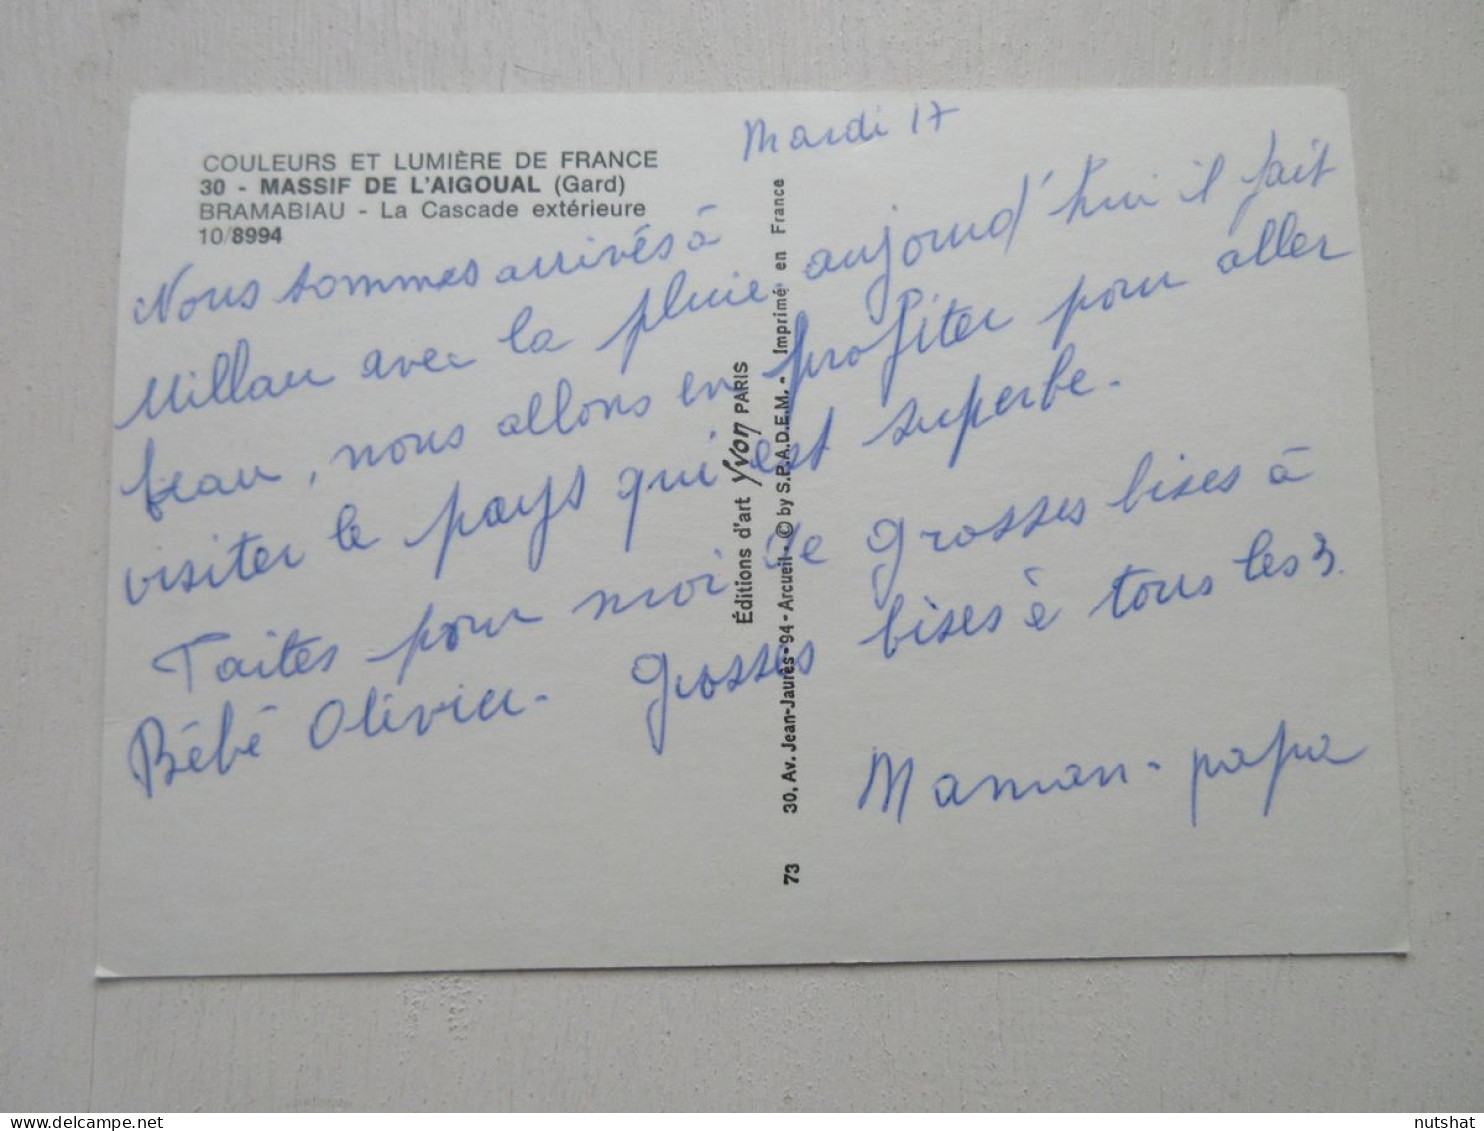 COULEURS ET LUMIÈRE DE FRANCE
30 - MASSIF DE L'AIGOUAL (Gard)
BRAMABIAU - La Cascade extérieure
10/8994
Mardi 17
Nous sommes arrivés à
Millau avec la pluie aujourd'hui il fait
beau, nous allons en profiter pour aller
visiter le pays qui est superbe.
Faites pour moi de grosses bises à
Bébé Olivier. Grosses bises à tous les 3.
Maman - papa
Éditions d'art Yvon PARIS
30, Av. Jean-Jaurès - 94 - Arcueil - © by S.P.A.D.E.M. - Imprimé en France
73
nutshat